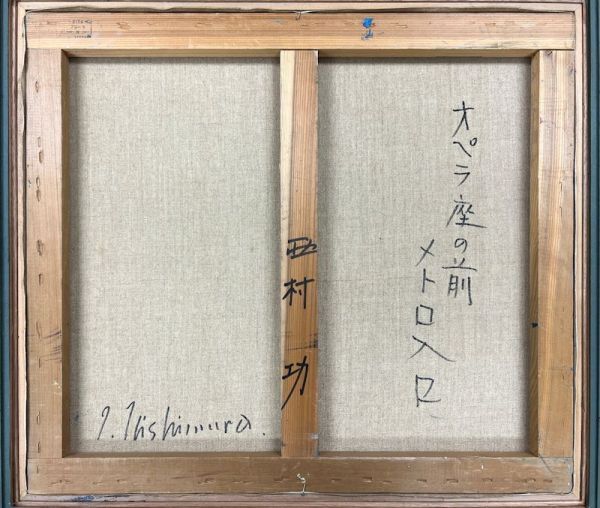 オペラ座の前
メトロ入口
西村功
I. Nishimura.